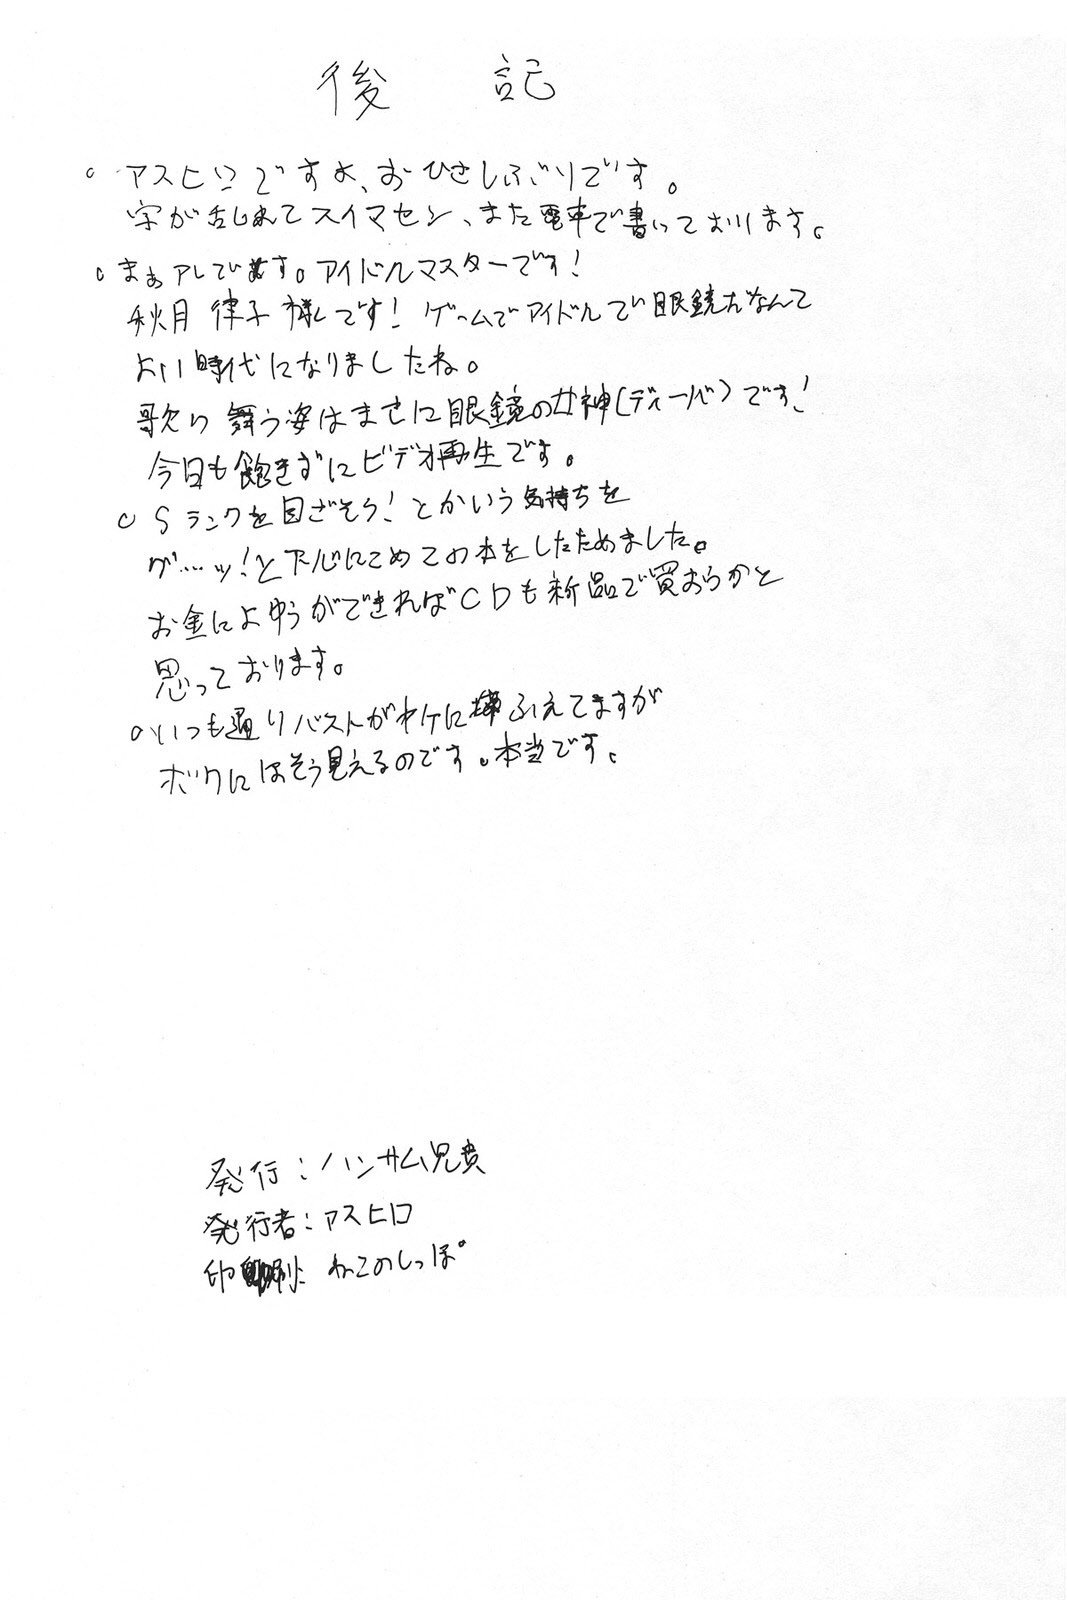 後記
。アスヒロですよ、おひさしぶりです。
字が乱れてスイマセン、また電車で書いております。
。まぁアレです。アイドルマスターです!
秋月律子様です! ゲームでアイドルで眼鏡だなんて
よい時代になりましたね。
歌い舞う姿はまさに眼鏡の女神(ディーバ)です!
今日も飽きずにビデオ再生です。
。Sランクを目ざそう!とかいう気持ちを
グ…ッ!と下心にこめてこの本をしたためました。
お金によゆうができればCDも新品で買おうかと
思っております。
。いつも通りバストがヤケにふえてますが
ボクにはそう見えるのです。本当です。
発行:ハンサム兄貴
発行者:アスヒロ
印刷:ねこのしっぽ